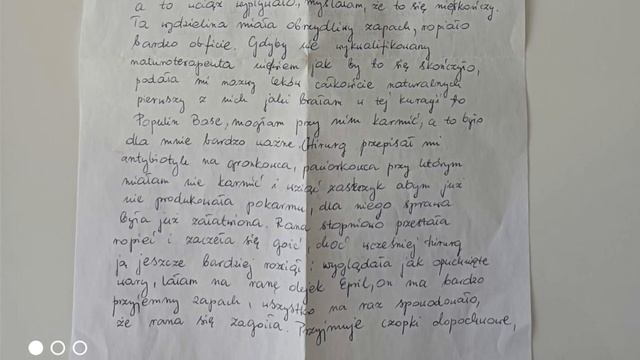 a to uciąż wypływało, myślałam, że to się nieskończy.
Ta wydzielina miała obrzydliwy zapach, ropiało
bardzo obficie. Gdyby nie wykualifikowany
naturoterapeuta niewiem jak by to się skończyło,
podała mi nazwy leków całkowicie naturalnych
pierwszy z nich jaki brałam w tej kuracji to
Populin Base, mogłam przy nim karmić, a to było
dla mnie bardzo ważne. Chirurg przepisał mi
antybiotyk na gronkowca, paciorkowca przy którym
miałam nie karmić i wziąć zastrzyk abym już
nie produkowała pokarmu, dla niego sprawa
była już załatwiona. Rana stopniowo przestała
ropieć i zaczęła się goić, choć wcześniej chirurg
ją jeszcze bardziej rozciął i wyglądała jak opuchnięte
wary, lałam na ranę olejek Epril, on ma bardzo
przyjemny zapach, wszystko na raz spowodowało,
że rana się zagoiła. Przyjmuje czopki dopochwowe,